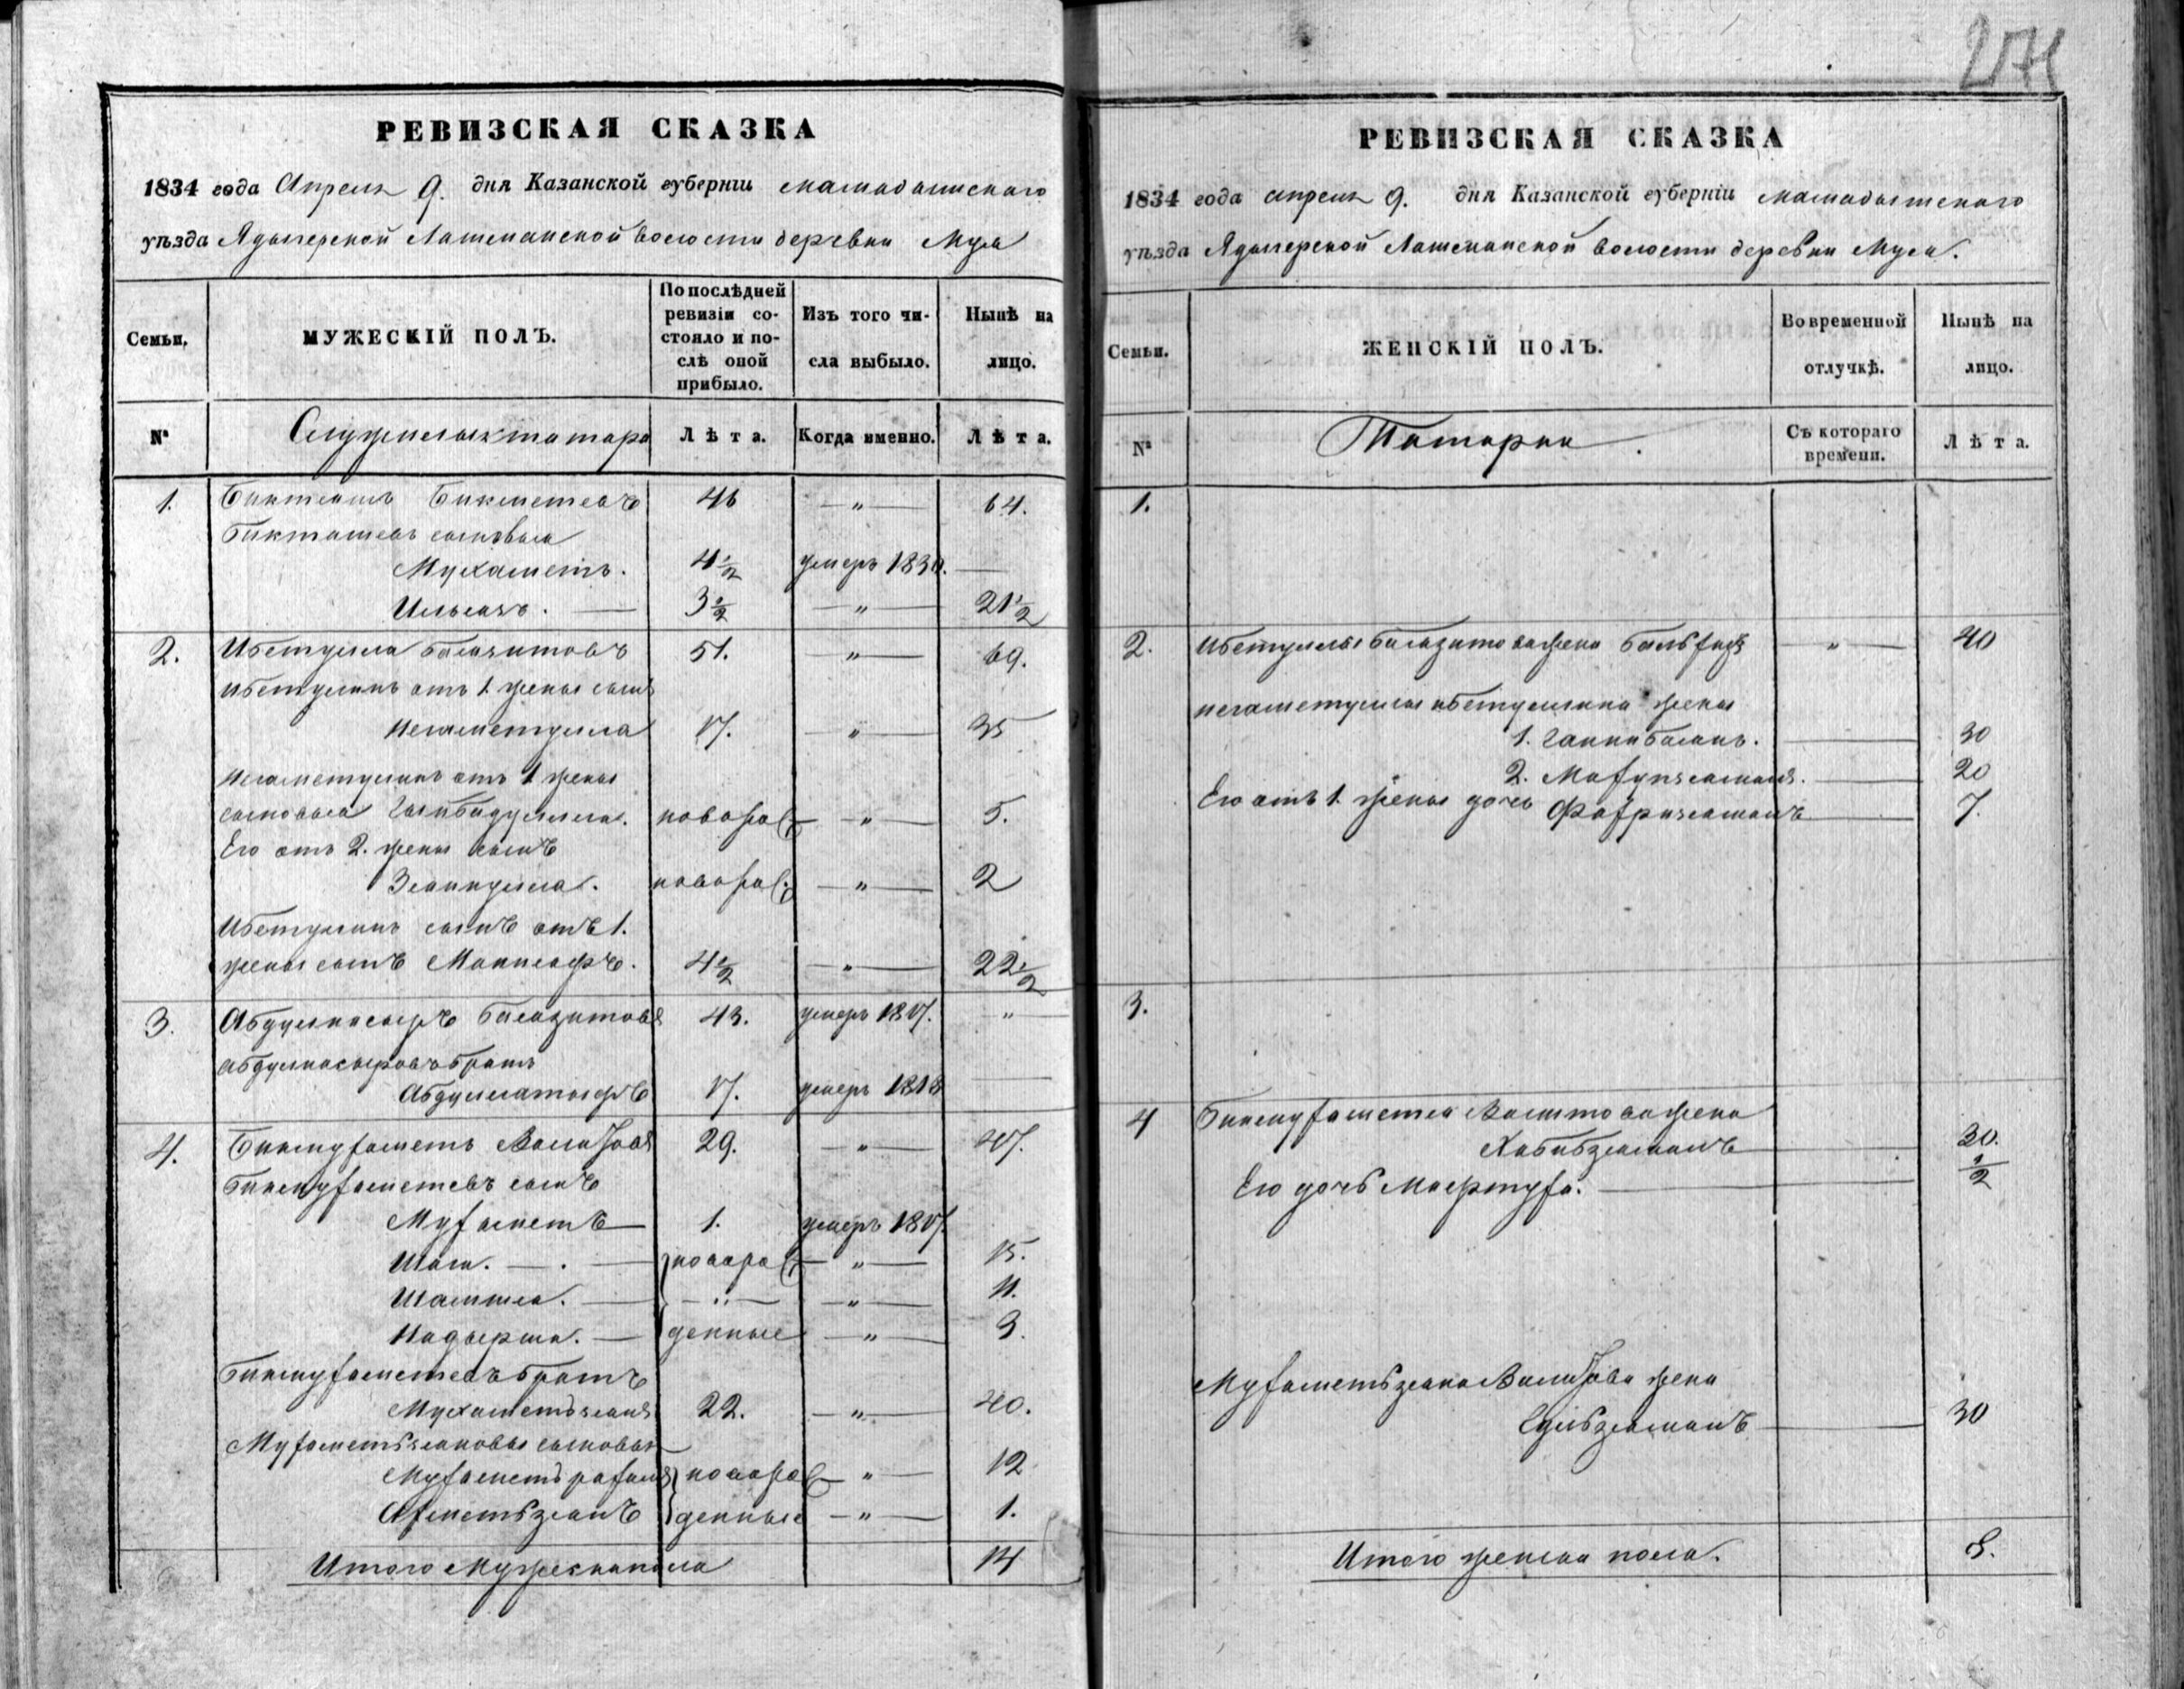 РЕВИЗСКАЯ СКАЗКА
1834 года Апреля 9. дня Казанской губерніи мамадышскаго
уѣзда Ядыгерской Лашманской волости деревни Муса
Семьи.
МУЖЕСКІЙ ПОЛЪ.
По послѣдней ревизіи состояло и послѣ оной прибыло.
Изъ того числа выбыло.
Нынѣ на лицо.
№
Служилыя татара
Лѣта.
Когда именно.
Лѣта.
1. Бикташъ Бикметевъ 46 — " — 64.
Бикташевы сыновья
Мухаметъ. 4½ умеръ 1830. —
Ильясъ. — 3½ — " — 21½
2. Ибетулла Баязитовъ 51. — " — 69.
Ибетуллинъ отъ 1 жены сынъ
Негаметулла 17. — " — 35
Негаметуллинъ отъ 1 жены
сыновья Гыибадулла. новорож — " — 5.
Его отъ 2. жены сынъ
Зианнулла. новорож. — " — 2
Ибетуллинъ сынъ отъ 1.
жены сынъ Маннафъ. 4½ — " — 22½
3. Абдулнасыръ Баязитовъ 43. умеръ 1817. "
Абдулнасыровъ братъ
Абдуллатыфъ 17. умеръ 1818 —
4. Бикмухаметъ Валитовъ 29. — " — 47.
Бикмухаметевъ сынъ
Мухаметъ — 1. умеръ 1817.
Шаги. — . — новорож — " — 15.
Шагимла. — — " — — " — 11.
Надырша. — денные — " — 3.
Бикмухаметевъ братъ
Мухаметьзянъ 22. — " — 40.
Мухаметьзяновы сыновья
Мухаметьрахимъ новорож — " — 12
Ахметьзянъ денные — " — 1.
Итого мужеска пола 14
РЕВИЗСКАЯ СКАЗКА
1834 года апреля 9. дня Казанской губерніи мамадышскаго
уѣзда Ядыгерской Лашманской волости деревни Муса.
Семьи.
ЖЕНСКІЙ ПОЛЪ.
Во временной отлучкѣ.
Нынѣ на лицо.
№
Татарки.
Съ котораго времени.
Лѣта.
1.
2. Ибетуллы Баязитова жена — " — 40
Негаметуллы Ибетуллина жены
1. Ганнибаянъ. — 30
2. Махупзяманъ. — 20
Его отъ 1. жены дочь Фахризяманъ — 7.
3.
4 Бикмухаметя Валитова жена
Хабибзяманъ — 30.
Его дочь Магртуха. — ½
Мухаметьзяна Валитова жена
Гульзяманъ — 30
Итого женска пола. 8.